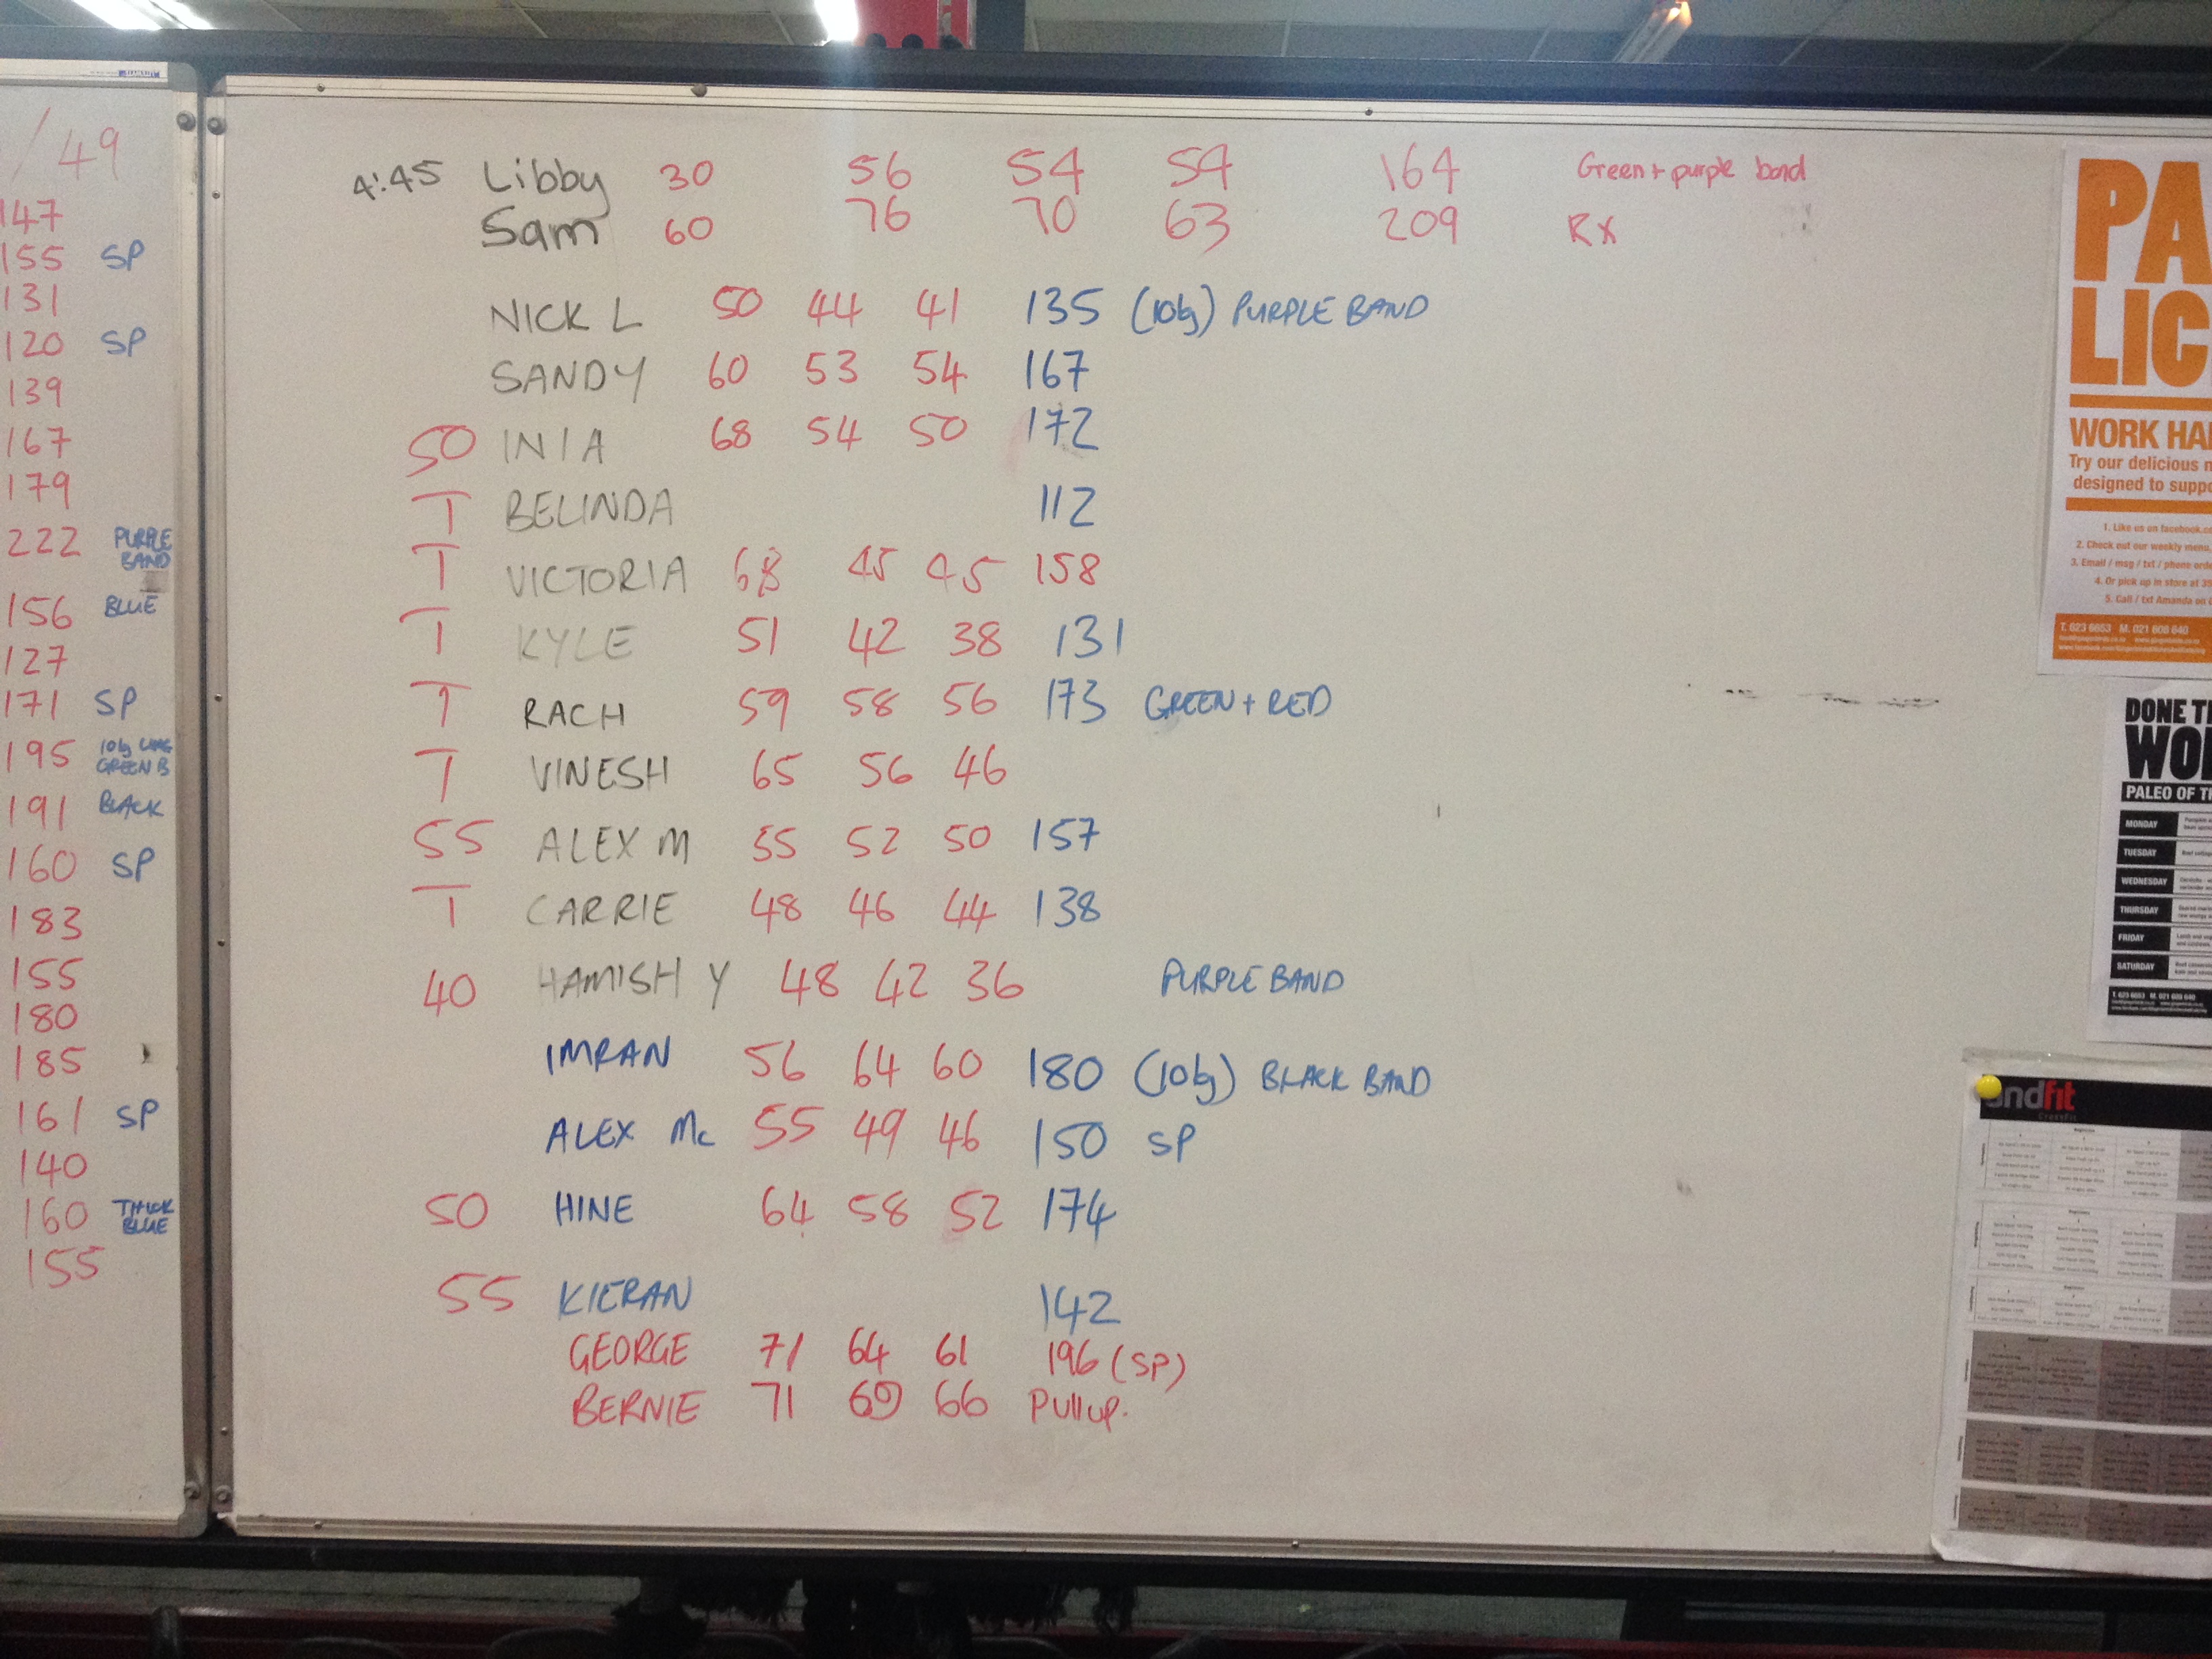 /49
147
155 SP
131
120 SP
139
167
179
222 PURPLE BAND
156 BLUE
127
171 SP
195 GREEN B
191 BLACK
160 SP
183
155
180
185
161 SP
140
160 THICK BLUE
155
4:45 Libby 30 56 54 54 164 Green + purple band
Sam 60 76 70 63 209 RX
NICK L 50 44 41 135 (10kg) PURPLE BAND
SANDY 60 53 54 167
50 INIA 68 54 50 172
T BELINDA 112
T VICTORIA 68 45 45 158
T KYLE 51 42 38 131
T RACH 59 58 56 173 GREEN + RED
T VINESH 65 56 46
55 ALEX M 55 52 50 157
T CARRIE 48 46 44 138
40 HAMISH Y 48 42 36 PURPLE BAND
IMRAN 56 64 60 180 (10kg) BLACK BAND
ALEX Mc 55 49 46 150 SP
50 HINE 64 58 52 174
55 KIERAN 142
GEORGE 71 64 61 196 (SP)
BERNIE 71 69 66 Pullup.
PA
LIC
WORK HA
Try our delicious
designed to suppo
1. Like us on facebook.co
2. Check out our weekly menu,
3. Email / msg / txt / phone orde
4. Or pick up in store at
5. Call / txt Amanda on
T. 623 6653 M. 021 608 640
DONE T
WO
PALEO OF T
MONDAY
TUESDAY
WEDNESDAY
THURSDAY
FRIDAY
SATURDAY
T. 623 6653 M. 021 608 640
ndfit